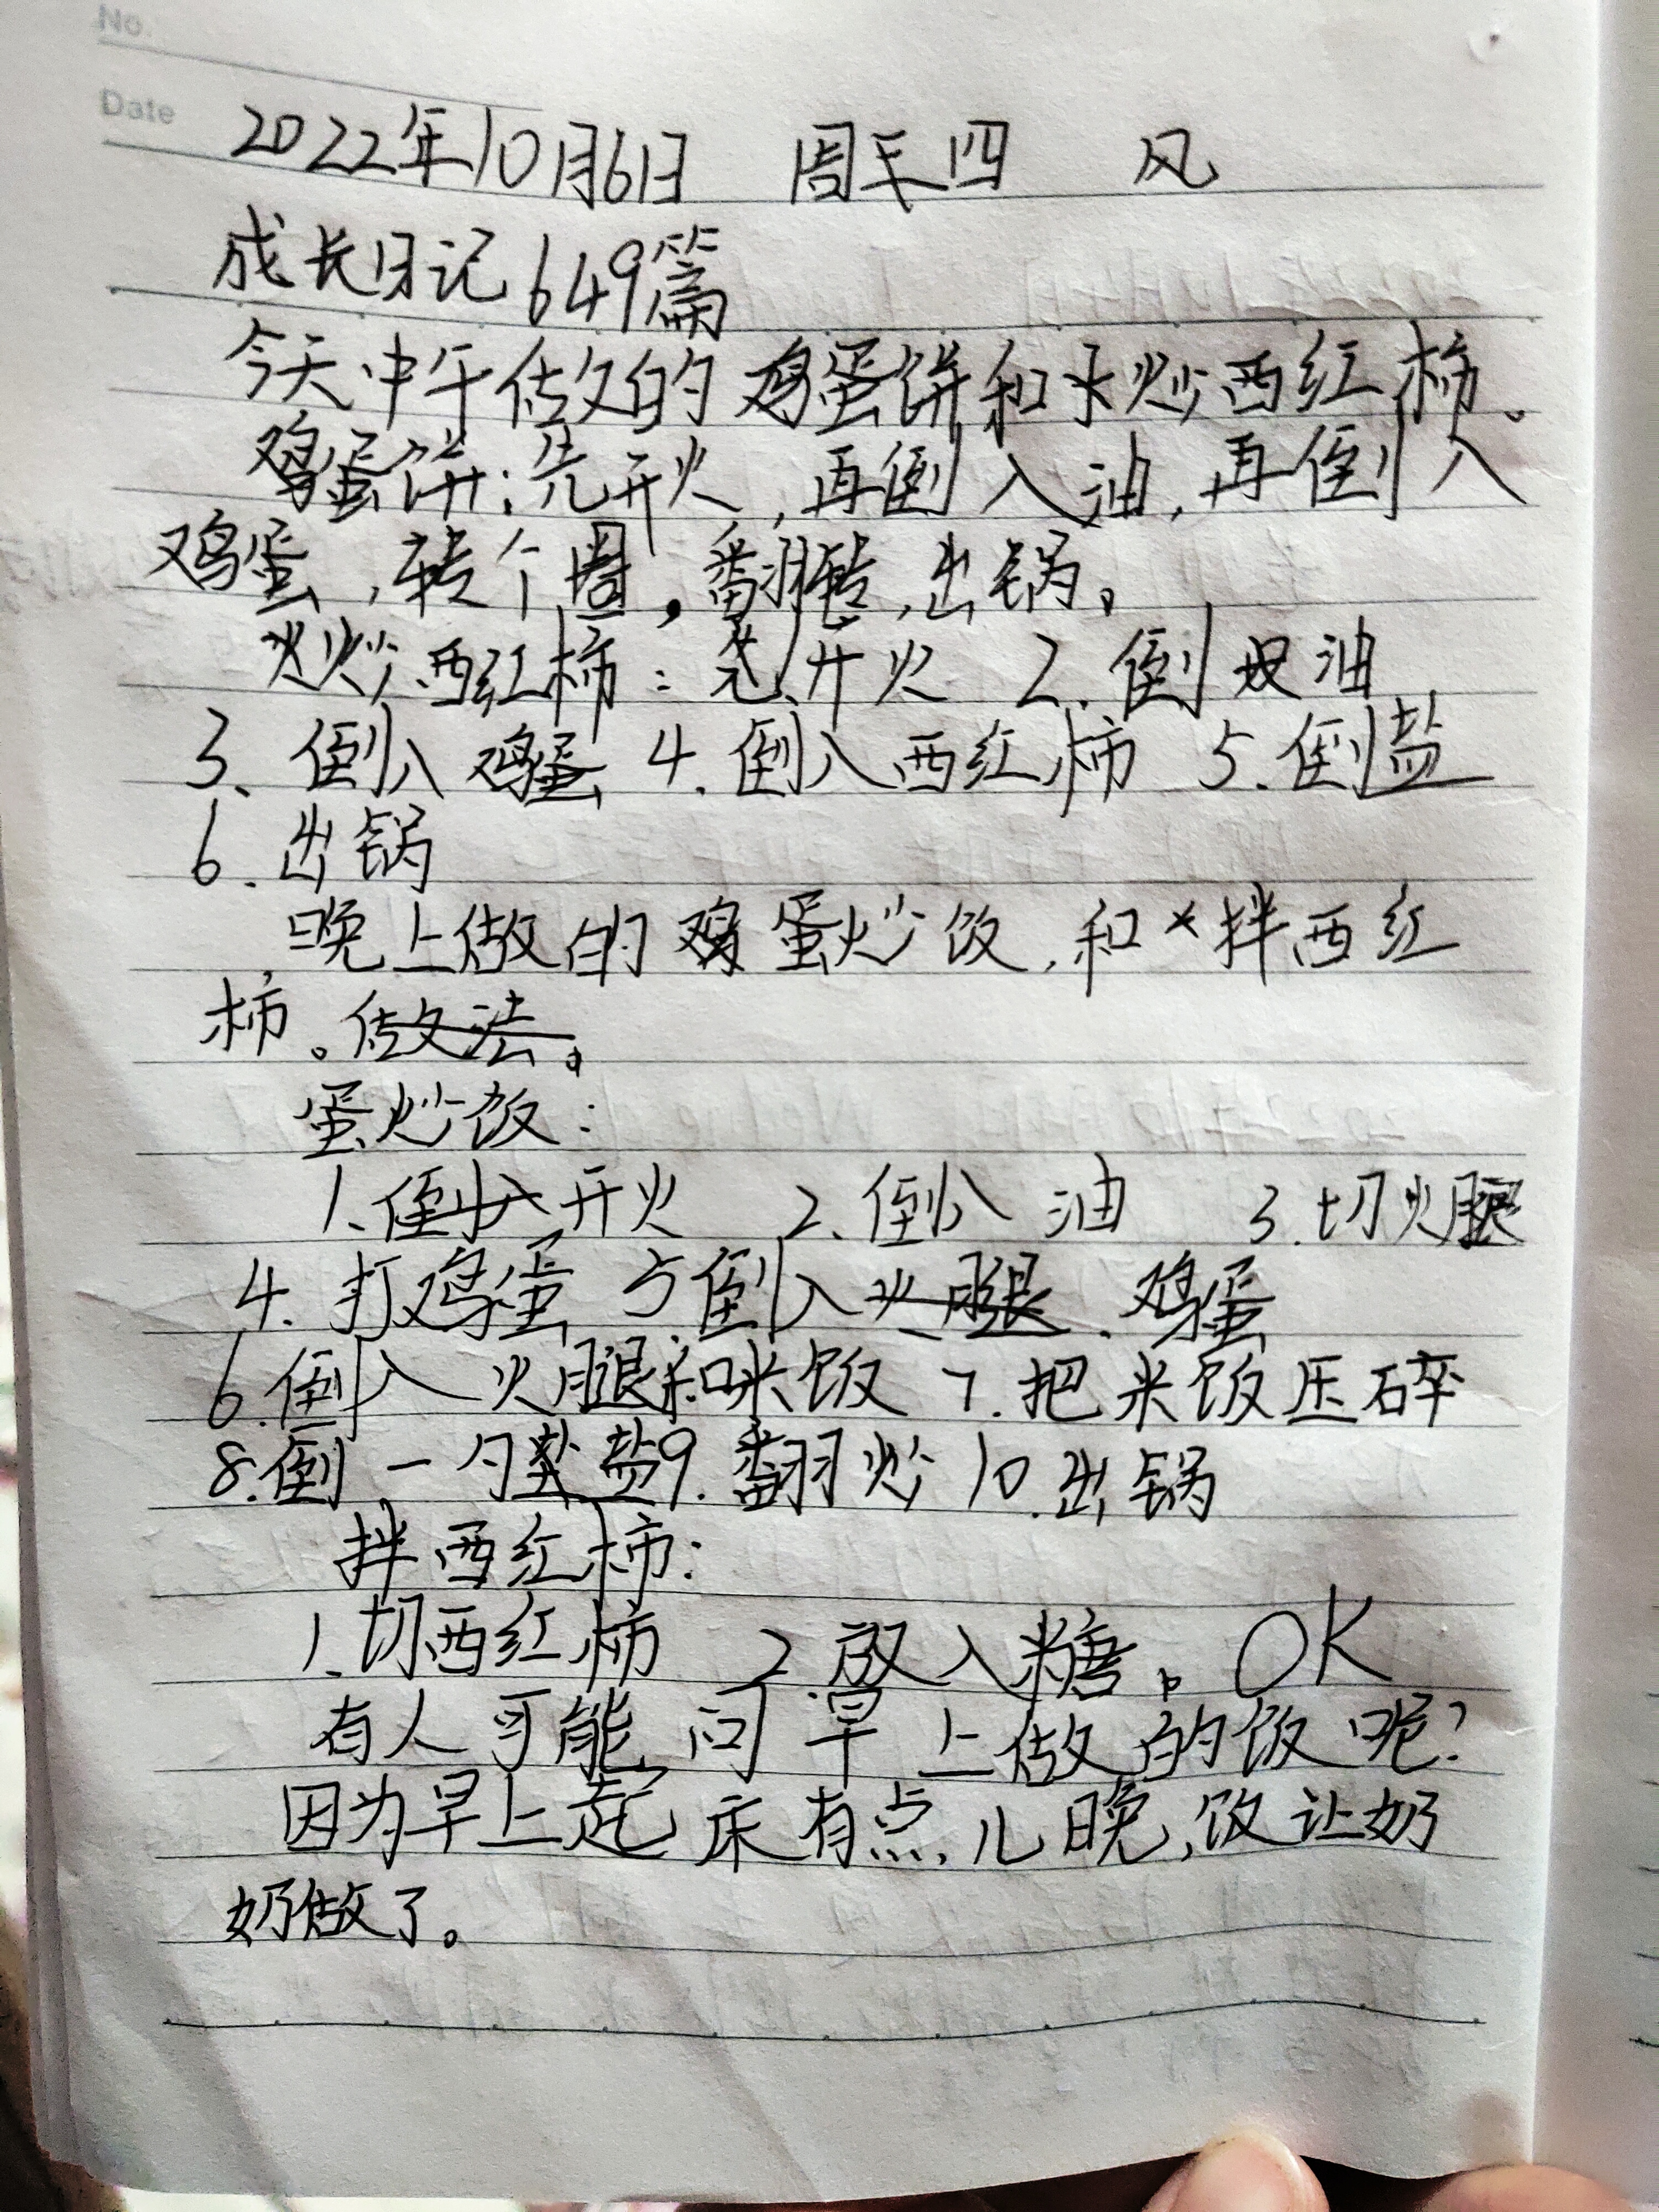 No.
Date 2022年10月6日 周四 风
成长日记649篇
今天中午做的鸡蛋饼和炒西红柿。
鸡蛋饼:先开火,再倒入油,再倒入
鸡蛋,转个圈,翻,出锅。
炒西红柿:先开火 2.倒油
3、倒入鸡蛋 4.倒入西红柿 5.倒盐
6.出锅
晚上做的鸡蛋炒饭,和拌西红
柿。做法。
蛋炒饭:
1、倒入开火 2.倒入油 3.切火腿
4.打鸡蛋 5倒入火腿、鸡蛋
6.倒入火腿和米饭 7.把米饭压碎
8.倒一勺盐9.翻炒10.出锅
拌西红柿:
1.切西红柿 2.放入糖。OK
有人可能问早上做的饭呢?
因为早上起床有点儿晚,饭让奶
奶做了。